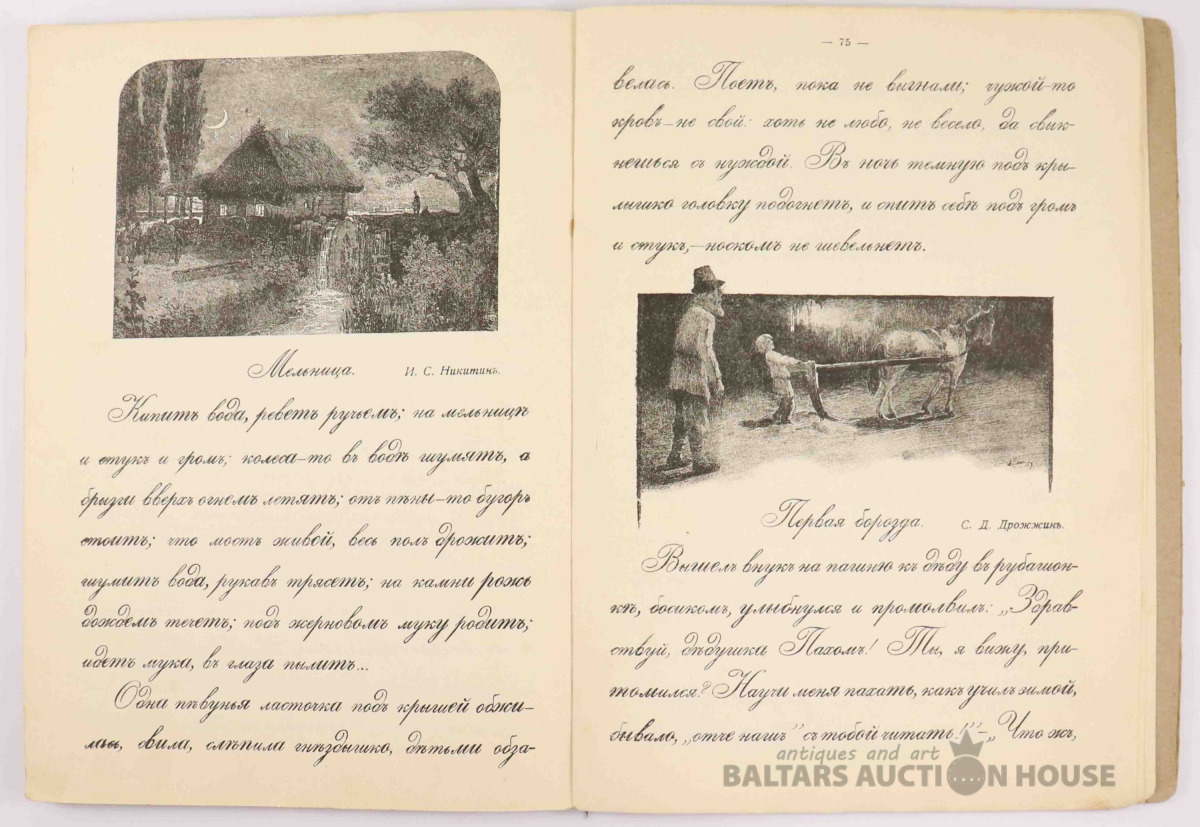 Мельница. И. С. Никитинъ.
Кипитъ вода, реветъ ручьемъ; на мельницѣ
и стукъ и громъ; колеса-то въ водѣ шумятъ, а
брызги вверхъ огнемъ летятъ; отъ пѣны-то бугоръ
стоитъ; что мостъ живой, весь полъ дрожитъ;
шумитъ вода, рукавъ трясетъ; на камни рожь
дождемъ течетъ; подъ жерновомъ муку родитъ;
идетъ мука, въ глаза пылитъ...
Одна пѣвунья ласточка подъ крышей обжи-
лась, свила, слѣпила гнѣздышко, дѣтьми обза-
— 75 —
велась. Поетъ, пока не выгнали; чужой-то
кровъ-не свой: хоть не любо, не весело, да свык-
нешься съ нуждой. Въ ночь темную подъ кры-
лышко головку подогнетъ, и спитъ себѣ подъ громъ
и стукъ,—носкомъ не шевельнетъ.
Первая борозда. С. Д. Дрожжинъ.
Вышелъ внукъ на пашню къ дѣду въ рубашон-
кѣ, босикомъ, улыбнулся и промолвилъ: „Здрав-
ствуй, дѣдушка Пахомъ! Ты, я вижу, при-
томился? Научи меня пахать, какъ училъ зимой,
бывало, „отче нашъ" съ тобой читать!"—„Что жъ,
antiques and art
BALTARS AUCTION HOUSE